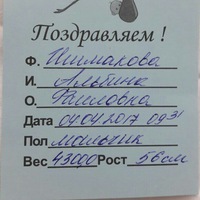 Поздравляем !
Ф. Ишмакова
И. Альбина
О. Раиловна
Дата 04.04.2017 09.31
Пол мальчик
Вес 43000 Рост 56 см